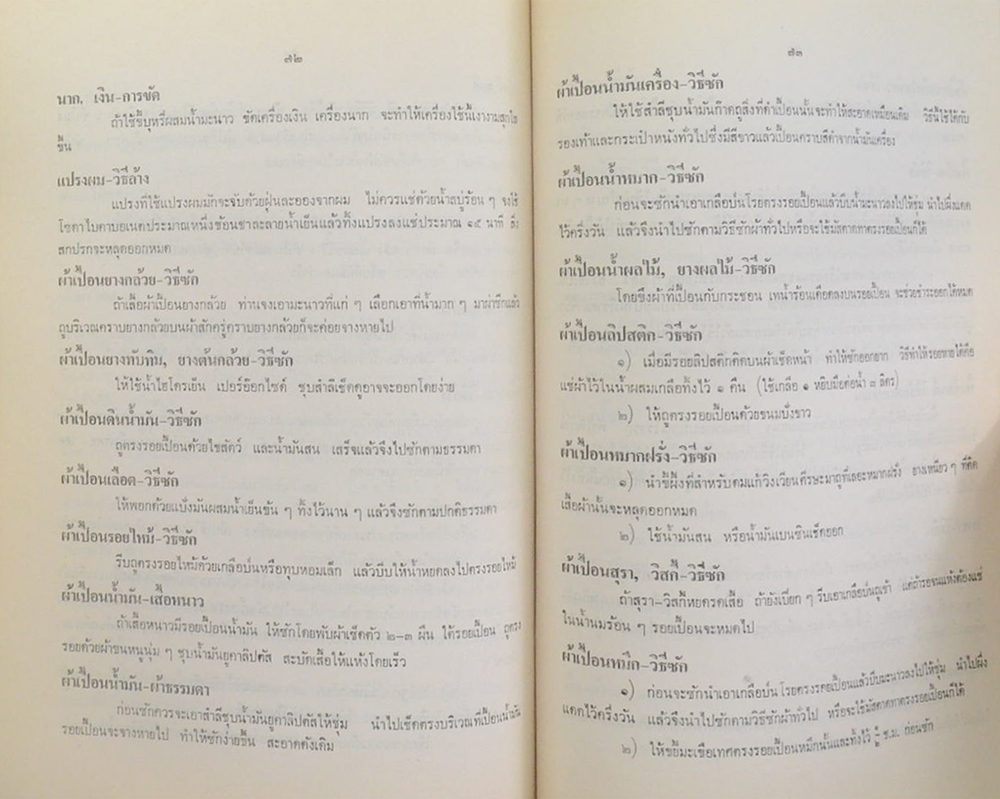 ๗๒
นาก, เงิน-การขัด
ถ้าใช้ขี้บุหรี่ผสมน้ำมะนาว ขัดเครื่องเงิน เครื่องนาก จะทำให้เครื่องใช้ขึ้นเงางามสุกใส
ขึ้น
แปรงผม-วิธีล้าง
แปรงที่ใช้แปรงผมมักจะจับด้วยฝุ่นละอองจากผม ไม่ควรแช่ด้วยน้ำสบู่ร้อน ๆ จงใช้
โซดาไบคาบอเนตประมาณหนึ่งช้อนชาละลายน้ำเย็นแล้วทิ้งแปรงลงแช่ประมาณ ๑๕ นาที สิ่ง
สกปรกจะหลุดออกหมด
ผ้าเปื้อนยางกล้วย-วิธีซัก
ถ้าเสื้อผ้าเปื้อนยางกล้วย ท่านจงเอามะนาวที่แก่ ๆ เลือกเอาที่น้ำมาก ๆ มาผ่าซีกแล้ว
ถูบริเวณคราบยางกล้วยบนผ้าสักครู่คราบยางกล้วยก็จะค่อยจางหายไป
ผ้าเปื้อนยางทับทิม, ยางต้นกล้วย-วิธีซัก
ให้ใช้น้ำไฮโดรเย็น เปอร์อ๊อกไซด์ ชุบสำลีเช็ดดูอาจจะออกโดยง่าย
ผ้าเปื้อนดินน้ำมัน-วิธีซัก
ถูตรงรอยเปื้อนด้วยไขสัตว์ และน้ำมันสน เสร็จแล้วจึงไปซักตามธรรมดา
ผ้าเปื้อนเลือด-วิธีซัก
ให้พอกด้วยแป้งมันผสมน้ำเย็นข้น ๆ ทิ้งไว้นาน ๆ แล้วจึงซักตามปกติธรรมดา
ผ้าเปื้อนรอยไหม้-วิธีซัก
รีบถูตรงรอยไหม้ด้วยเกลือป่นหรือทุบหอมเล็ก แล้วบีบให้น้ำหยดลงไปตรงรอยไหม้
ผ้าเปื้อนน้ำมัน-เสื้อหนาว
ถ้าเสื้อหนาวมีรอยเปื้อนน้ำมัน ให้ซักโดยพับผ้าเช็ดตัว ๒-๓ ผืน ใต้รอยเปื้อน ถูตรง
รอยด้วยผ้าขนหนูนุ่ม ๆ ชุบน้ำมันยูคาลิปตัส สะบัดเสื้อให้แห้งโดยเร็ว
ผ้าเปื้อนน้ำมัน-ผ้าธรรมดา
ก่อนซักควรจะเอาสำลีชุบน้ำมันยูคาลิปตัสให้ชุ่ม นำไปเช็ดตรงบริเวณที่เปื้อนน้ำมัน
รอยเปื้อนจะจางหายไป ทำให้ซักง่ายขึ้น สะอาดดังเดิม
๗๓
ผ้าเปื้อนน้ำมันเครื่อง-วิธีซัก
ให้ใช้สำลีชุบน้ำมันก๊าดถูสิ่งที่ดำเปื้อนนั้นจะทำให้สะอาดเหมือนเดิม วิธีนี้ใช้ได้กับ
รองเท้าและกระเป๋าหนังทั่วไปซึ่งมีสีขาวแล้วเปื้อนคราบสีดำจากน้ำมันเครื่อง
ผ้าเปื้อนน้ำหมาก-วิธีซัก
ก่อนจะซักนำเอาเกลือป่นโรยตรงรอยเปื้อนแล้วบีบน้ำมะนาวลงไปให้ชุ่ม นำไปผึ่งแดด
ไว้ครึ่งวัน แล้วจึงนำไปซักตามวิธีซักผ้าทั่วไปหรือจะใช้มัสตาดทาตรงรอยเปื้อนก็ได้
ผ้าเปื้อนน้ำผลไม้, ยางผลไม้-วิธีซัก
โดยขึงผ้าที่เปื้อนกับกระชอน เทน้ำร้อนเดือดลงบนรอยเปื้อน จะช่วยชำระออกได้หมด
ผ้าเปื้อนลิปสติก-วิธีซัก
๑) เมื่อมีรอยลิปสติกติดบนผ้าเช็ดหน้า ทำให้ซักออกยาก วิธีทำให้รอยหายได้คือ
แช่ผ้าไว้ในน้ำผสมเกลือทิ้งไว้ ๑ คืน (ใช้เกลือ ๑ หยิบมือต่อน้ำ ๓ ลิตร)
๒) ให้ถูตรงรอยเปื้อนด้วยขนมปังขาว
ผ้าเปื้อนหมากฝรั่ง-วิธีซัก
๑) นำขี้ผึ้งที่สำหรับดมแก้วิงเวียนศีรษะมาถูที่เลอะหมากฝรั่ง ยางเหนียว ๆ ที่ติด
เสื้อผ้านั้นจะหลุดออกหมด
๒) ใช้น้ำมันสน หรือน้ำมันเบนซินเช็ดออก
ผ้าเปื้อนสุรา, วิสกี้-วิธีซัก
ถ้าสุรา-วิสกี้หยดรดเสื้อ ถ้ายังเปียก ๆ รีบเอาเกลือป่นถูเข้า แต่ถ้ารอจนแห้งต้องแช่
ในน้ำนมร้อน ๆ รอยเปื้อนจะหมดไป
ผ้าเปื้อนหมึก-วิธีซัก
๑) ก่อนจะซักนำเอาเกลือป่น โรยตรงรอยเปื้อนแล้วบีบมะนาวลงไปให้ชุ่ม นำไปผึ่ง
แดดไว้ครึ่งวัน แล้วจึงนำไปซักตามวิธีซักผ้าทั่วไป หรือจะใช้มัสตาดทาตรงรอยเปื้อนก็ได้
๒) ให้ขยี้มะเขือเทศตรงรอยเปื้อนหมึกนั้นและทิ้งไว้ ช.ม. ก่อนซัก